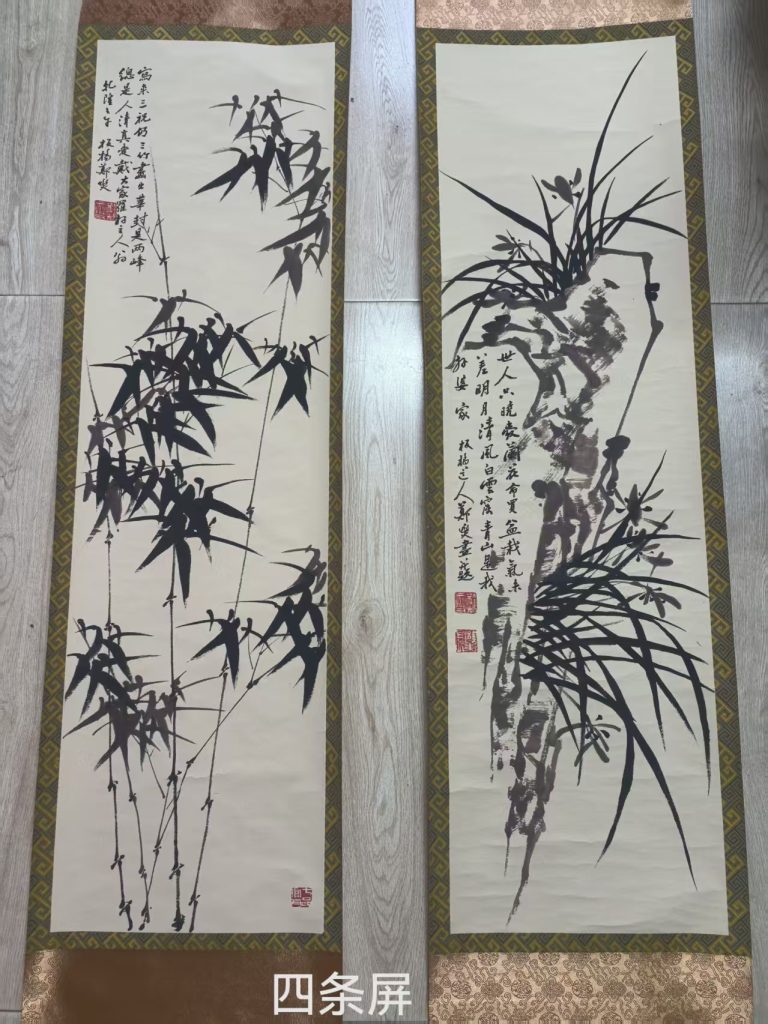 寫來三祝仍三竹畫出華封是兩峰
總是人情真愛戴大家羅拜主人翁
乾隆壬午 板橋鄭燮
世人只曉愛蘭花市買盆栽氣味
差明月清風白雲窟青山是我
外婆家 板橋道人鄭燮畫並題
四条屏